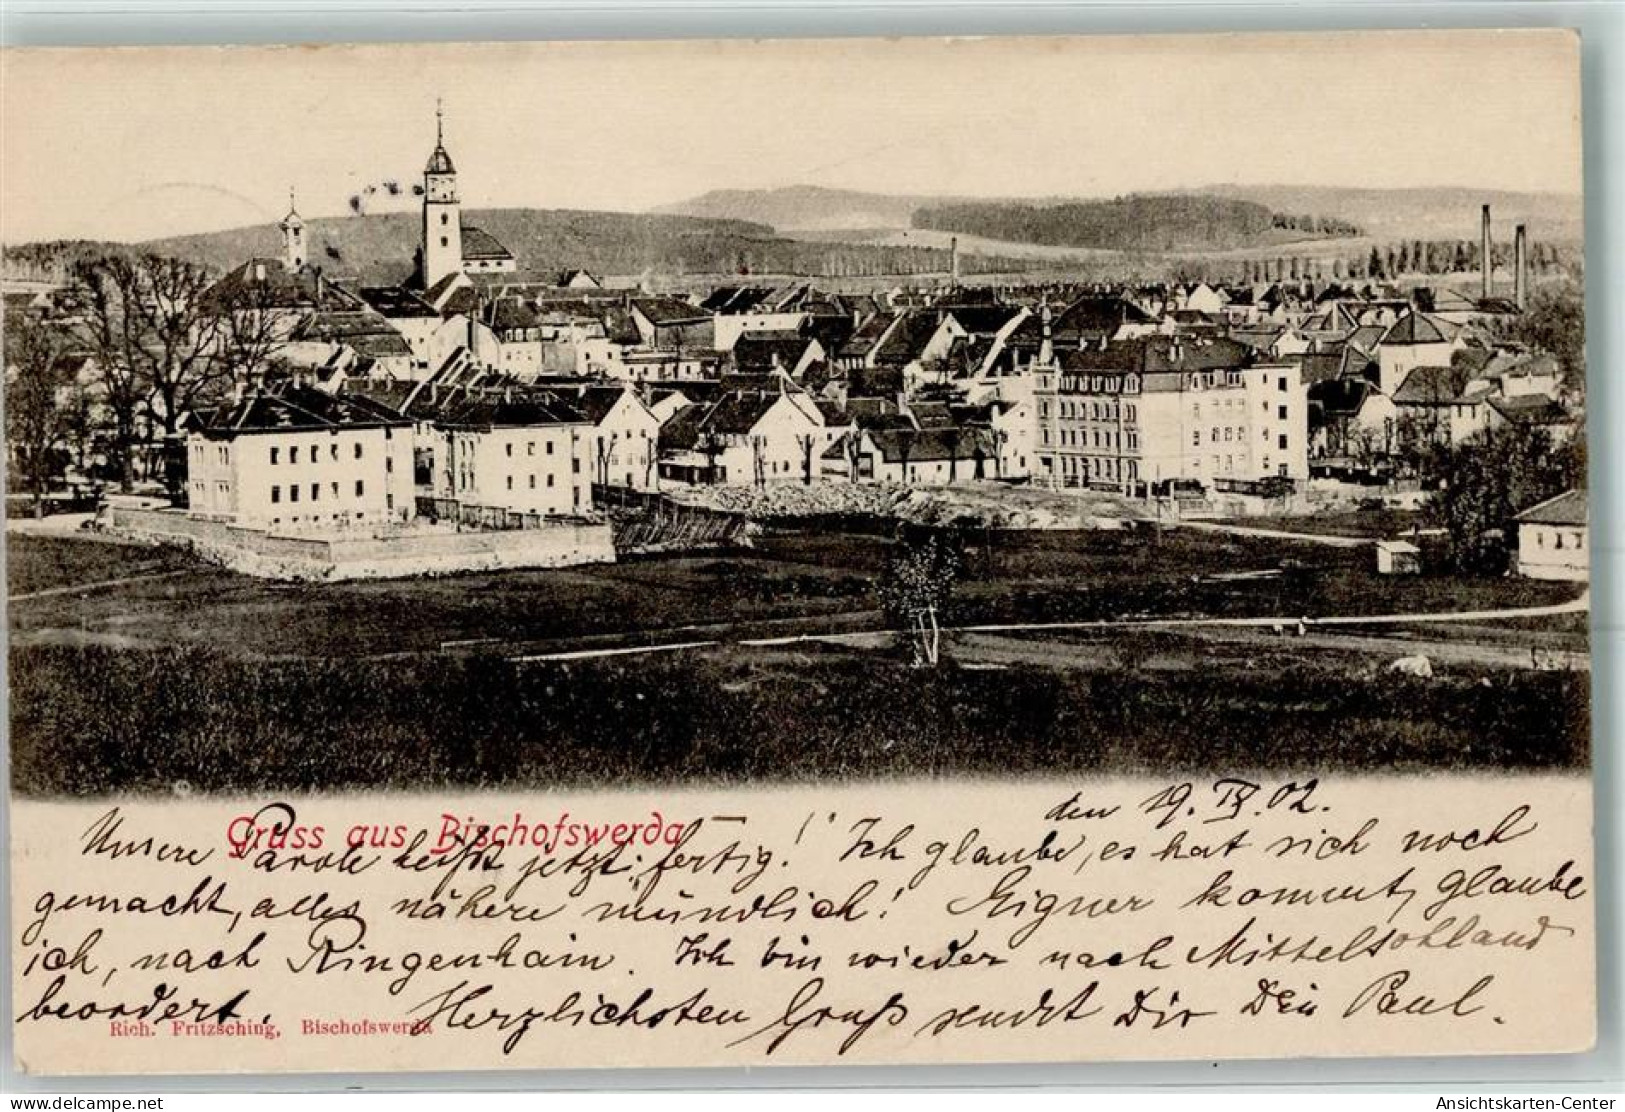 den 19. IX. 02.
Gruss aus Bischofswerda
Unsere Parole heißt jetzt: „fertig!“ Ich glaube, es hat sich noch
gemacht, alles nähere mündlich! Eigner kommt, glaube
ich, nach Ringenhain. Ich bin wieder nach Mittelsohland
beordert. Herzlichsten Gruß sendet Dir Dein Paul.
Rich. Fritzsching, Bischofswerda
www.delcampe.net
Ansichtskarten-Center